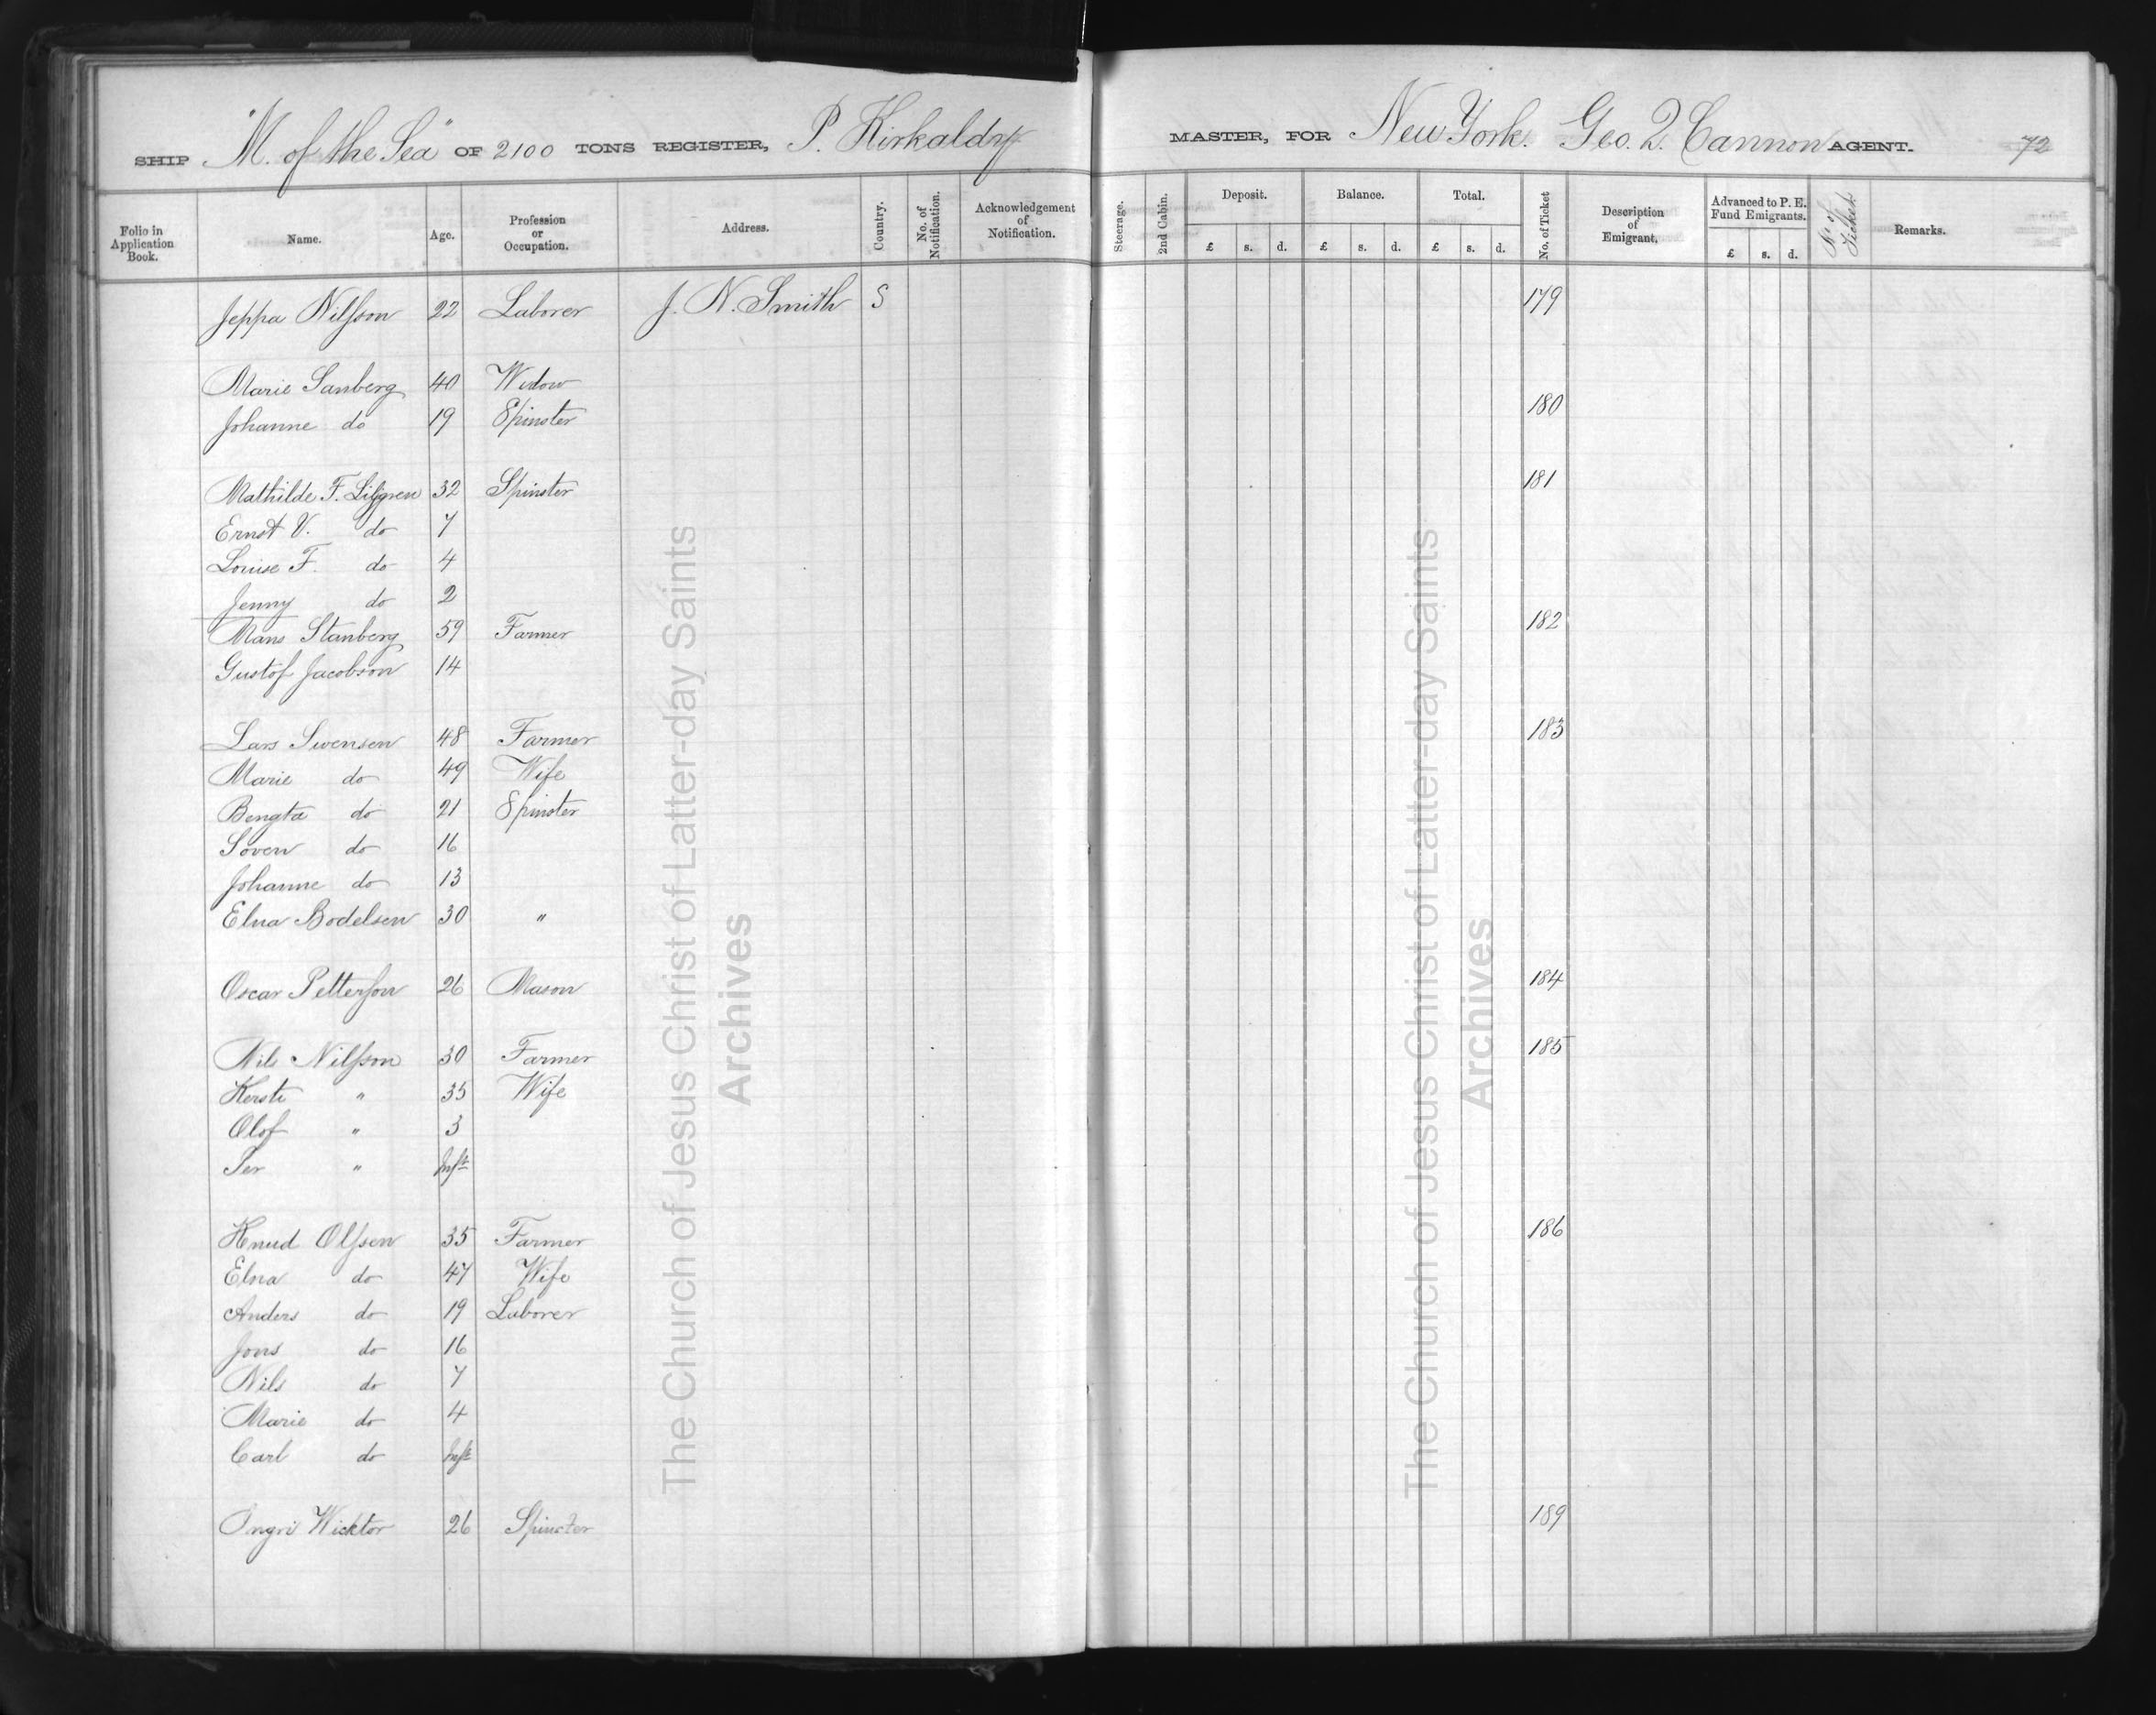 SHIP "M. of the Sea" OF 2100 TONS REGISTER, P. Kirkaldy MASTER, FOR New York. Geo. Q. Cannon AGENT. 72
Folio in Application Book. Name. Age. Profession or Occupation. Address. Country. No. of Notification. Acknowledgement of Notification. Steerage. 2nd Cabin. Deposit. £ s. d. Balance. £ s. d. Total. £ s. d. No. of Ticket Description of Emigrant. Advanced to P. E. Fund Emigrants. £ s. d. No. of Ticket Remarks.
Jeppa Nilsson 22 Laborer J. N. Smith S 179
Marie Sanberg 40 Widow
Johanne do 19 Spinster 180
Mathilde F. Liljgren 32 Spinster 181
Ernst V. do 7
Louise F. do 4
Jenny do 2
Mans Stanberg 59 Farmer 182
Gustof Jacobson 14
Lars Swensen 48 Farmer 183
Marie do 49 Wife
Bengta do 21 Spinster
Soven do 16
Johanne do 13
Elna Bodelsen 30 "
Oscar Petterson 26 Mason 184
Nils Nilsson 30 Farmer 185
Kersti " 35 Wife
Olof " 3
Per " Inft
Knud Olsson 35 Farmer 186
Elna do 47 Wife
Anders do 19 Laborer
Jons do 16
Nils do 7
Marie do 4
Carl do Inft
Ingri Wicktor 26 Spinster 189
The Church of Jesus Christ of Latter-day Saints
Archives
The Church of Jesus Christ of Latter-day Saints
Archives